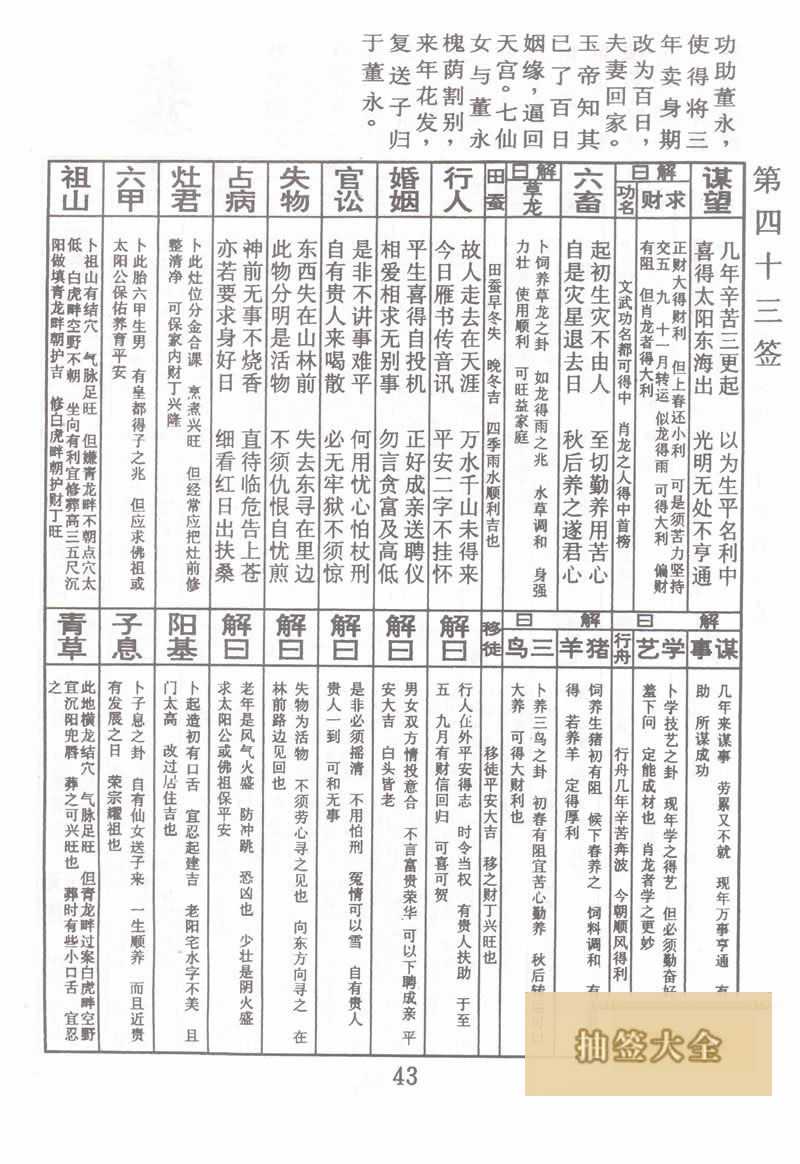 功助董永，
使得将三
年卖身期
改为百日，
夫妻回家。
玉帝知其
已了百日
姻缘，逼回
天宫。七仙
女与董永
槐荫割别，
来年花发，
复送子归
于董永。
第四十三签
谋望
几年辛苦三更起 以为生平名利中
喜得太阳东海出 光明无处不亨通
解曰
求财
正财大得财利 但上春还小利 可是须苦力坚持
交五 九 十一月转运 似龙得雨 可得大利 偏财
有阻 但肖龙者得大利
功名
文武功名都可得中 肖龙之人得中首榜
六畜
起初生灾不由人 至切勤养用苦心
自是灾星退去日 秋后养之遂君心
解曰
草龙
卜饲养草龙之卦 如龙得雨之兆 水草调和 身强
力壮 使用顺利 可旺益家庭
田蚕
田蚕早冬失 晚冬吉 四季雨水顺利吉也
行人
故人走去在天涯 万水千山未得来
今日雁书传音讯 平安二字不挂怀
婚姻
平生喜得自投机 正好成亲送聘仪
相爱相求无别事 勿言贪富及高低
官讼
是非不讲事难平 何用忧心怕杖刑
自有贵人来喝散 必无牢狱不须惊
失物
东西失在山林前 失去东寻在里边
此物分明是活物 不须仇恨自忧煎
占病
神前无事不烧香 直待临危告上苍
亦若要求身好日 细看红日出扶桑
灶君
卜此灶位分金合课 烹煮兴旺 但经常应把灶前修
整清净 可保家内财丁兴隆
六甲
卜此胎六甲生男 有皇都得子之兆 但应求佛祖或
太阳公保佑养育平安
祖山
卜祖山有结穴 气脉足旺 但嫌青龙畔不朝点穴太
低 白虎畔空野不朝 坐向有利宜修葬高三五尺沉
阳做填青龙畔朝护吉 修白虎畔朝护财丁旺
解曰
谋事
几年来谋事 劳累又不就 现年万事亨通 有
助 所谋成功
学艺
卜学技艺之卦 现年学之得艺 但必须勤奋好
羞下问 定能成材也 肖龙者学之更妙
行舟
行舟几年辛苦奔波 今朝顺风得利
解曰
猪羊
饲养生猪初有阻 候下春养之 饲料调和 有
得 若养羊 定得厚利
三鸟
卜养三鸟之卦 初春有阻宜苦心勤养 秋后转
大养 可得大财利也
移徒
移徒平安大吉 移之财丁兴旺也
解曰
行人在外平安得志 时令当权 有贵人扶助 于至
五 九月有财信回归 可喜可贺
解曰
男女双方情投意合 不言富贵荣华 可以下聘成亲 平
安大吉 白头皆老
解曰
是非必须摇清 不用怕刑 冤情可以雪 自有贵人
贵人一到 可和无事
解曰
失物为活物 不须劳心寻之见也 向东方向寻之 在
林前路边见回也
解曰
老年是风气火盛 防冲跳 恐凶也 少壮是阴火盛
求太阳公或佛祖保平安
阳基
卜起造初有口舌 宜忍起建吉 老阳宅水字不美 且
门太高 改过居住吉也
子息
卜子息之卦 自有仙女送子来 一生顺养 而且近贵
有发展之日 荣宗耀祖也
青草
此地横龙结穴 气脉足旺 但青龙畔过案白虎畔空野
宜沉阳兜唇 葬之可兴旺也 葬时有些小口舌 宜忍
之
43
抽签大全